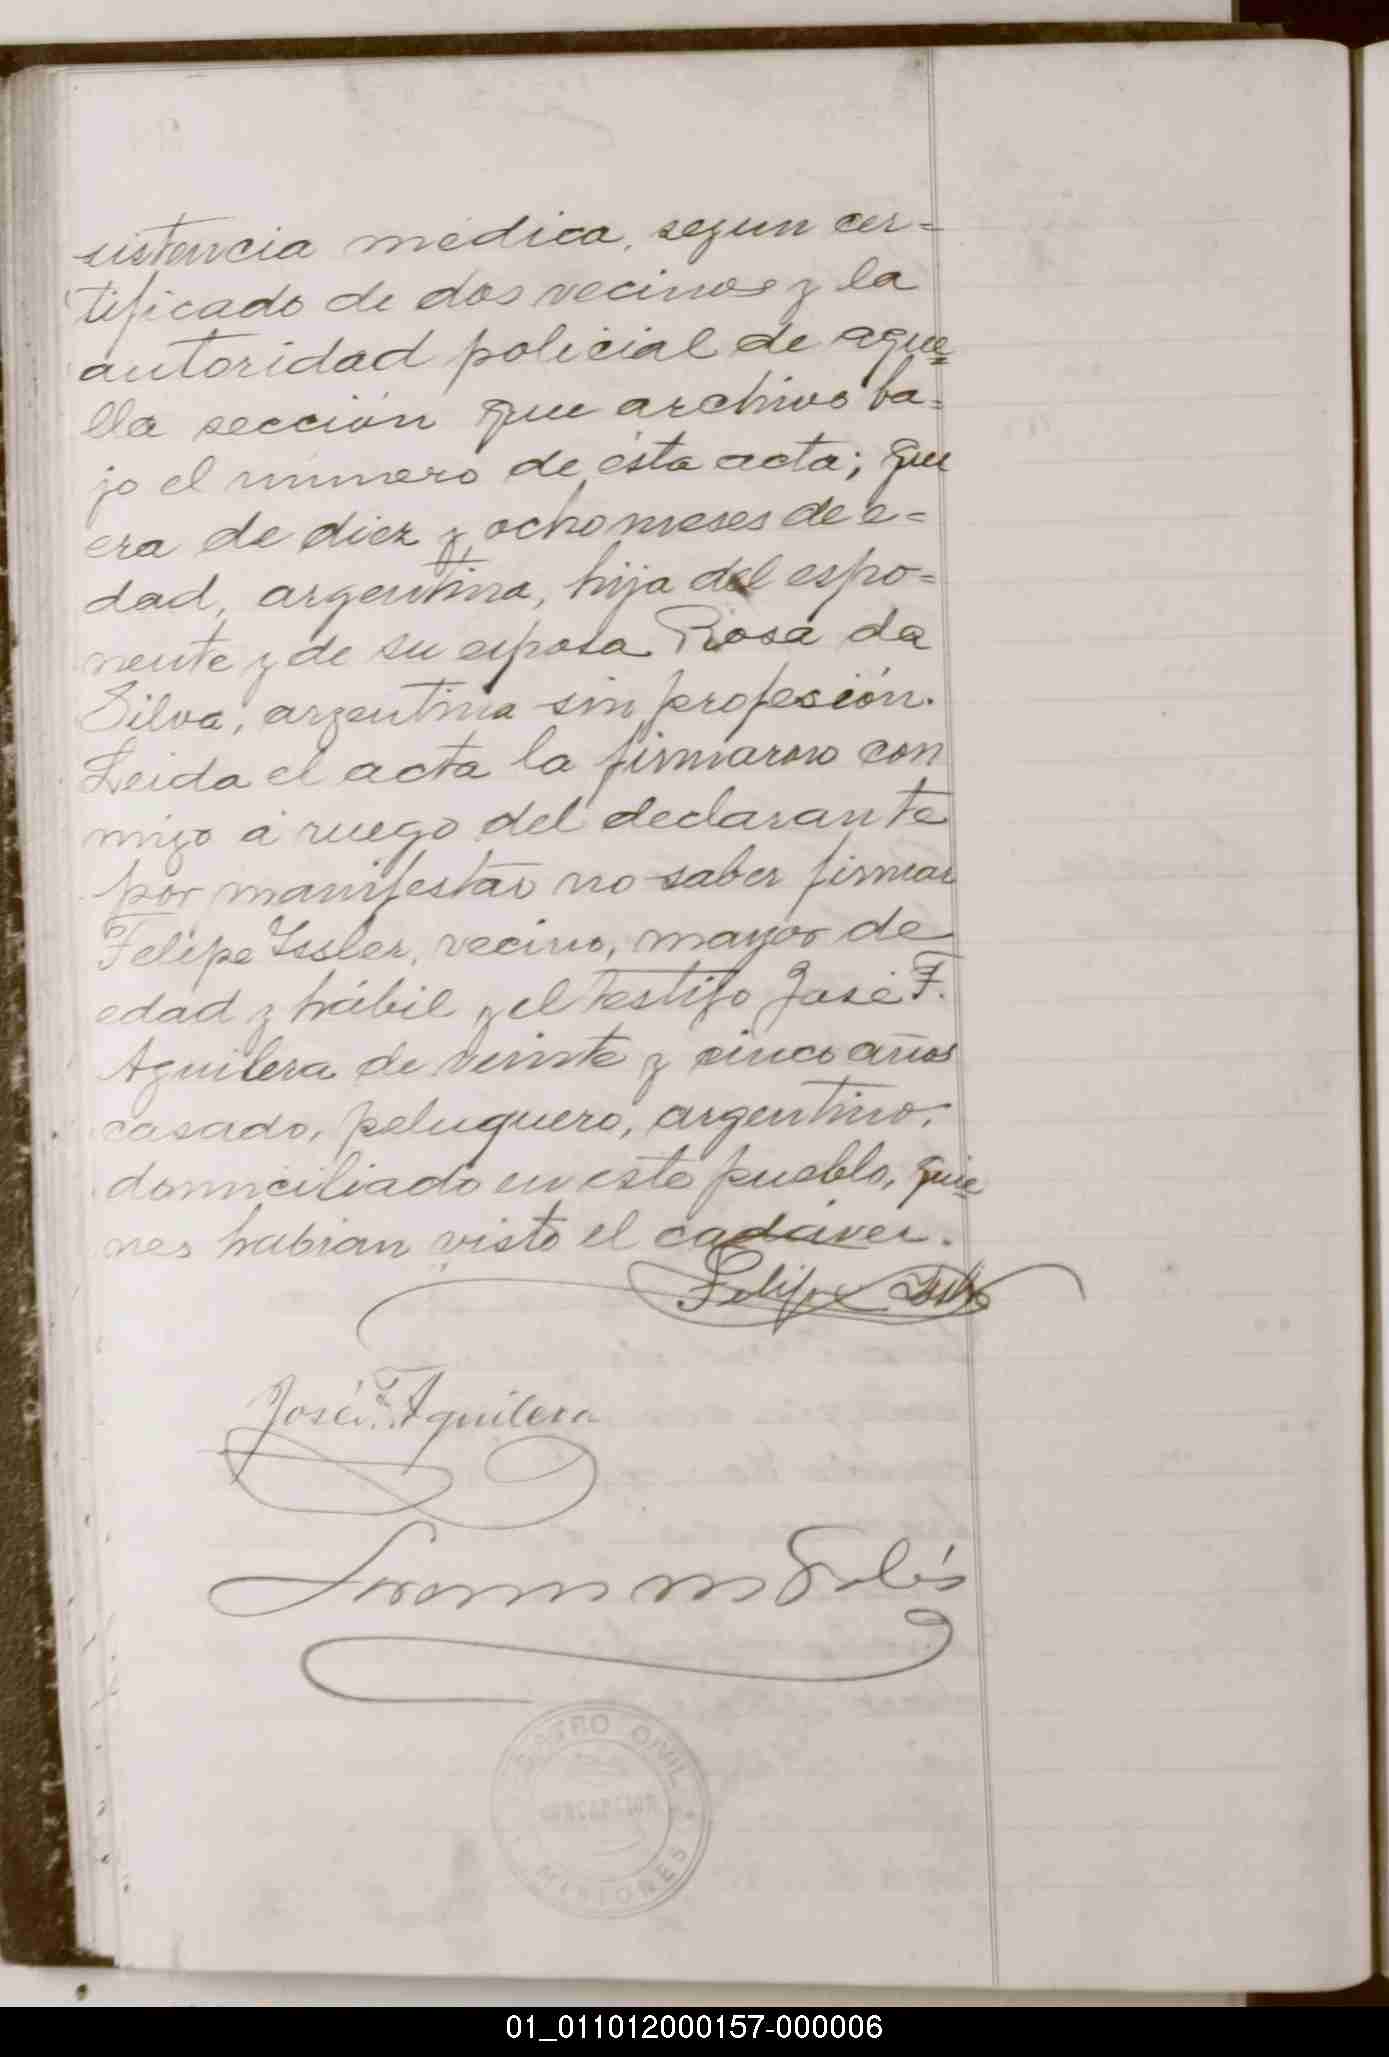 sistencia médica, segun cer=
tificado de dos vecinos y la
autoridad policial de aque=
lla sección que archivo ba=
jo el número de ésta acta; que
era de diez y ocho meses de e=
dad, argentina, hija del espo=
nente y de su esposa Rosa da
Silva, argentina sin profesión.
Leida el acta la firmaron con
migo á ruego del declarante
por manifestar no saber firmar
Felipe Issler, vecino, mayor de
edad y hábil y el testigo José F.
Aguilera de veinte y cinco años
casado, peluquero, argentino,
domiciliado en este pueblo, quie=
nes habian visto el cadáver.
Felipe Issler
José F. Aguilera
REGISTRO CIVIL
CONCEPCION
MISIONES
01_011012000157-000006